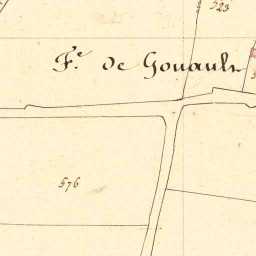 523
F.e de Gouault
576